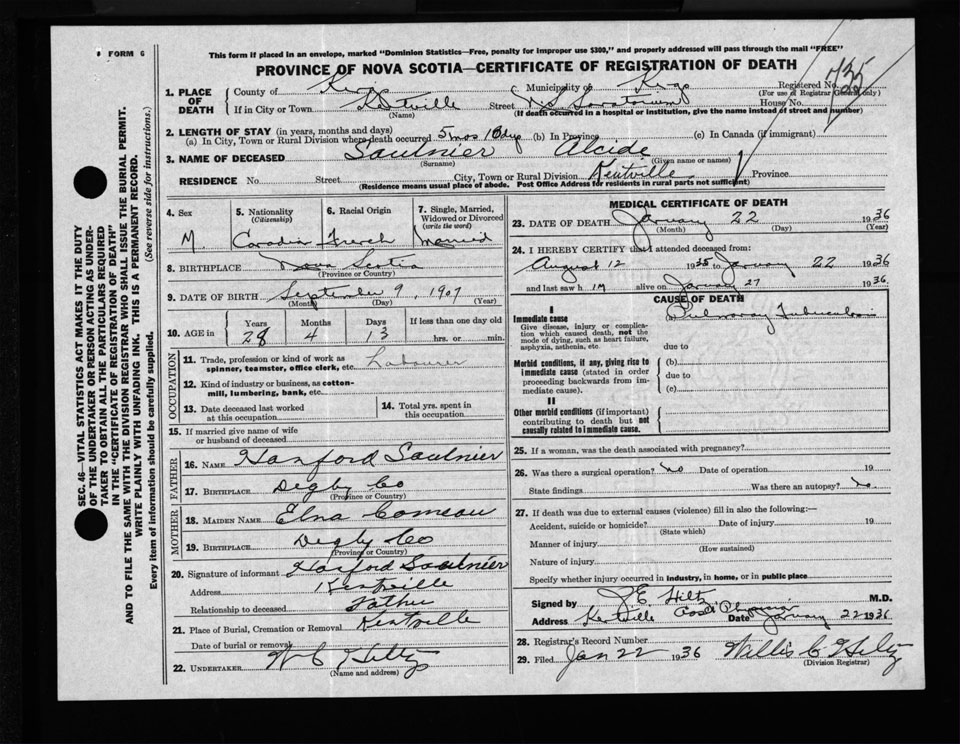 FORM 6
This form if placed in an envelope, marked "Dominion Statistics—Free, penalty for improper use $300," and properly addressed will pass through the mail "FREE"
PROVINCE OF NOVA SCOTIA—CERTIFICATE OF REGISTRATION OF DEATH
Registered No. 735
(For use of Registrar General only)
1. PLACE OF DEATH
County of Kings Municipality of Kings
If in City or Town Kentville Street N S Sanatorium House No.
(Name) (If death occurred in a hospital or institution, give the name instead of street and number)
2. LENGTH OF STAY (in years, months and days)
(a) In City, Town or Rural Division where death occurred 5 mos 10 dys (b) In Province (c) In Canada (if immigrant)
3. NAME OF DECEASED Saulnier Alcide
(Surname) (Given name or names)
RESIDENCE No. Street City, Town or Rural Division Kentville Province
(Residence means usual place of abode. Post Office Address for residents in rural parts not sufficient)
4. Sex M.
5. Nationality (Citizenship) Canadian
6. Racial Origin French
7. Single, Married, Widowed or Divorced (write the word) Married
8. BIRTHPLACE Nova Scotia
(Province or Country)
9. DATE OF BIRTH September 9, 1907
(Month) (Day) (Year)
10. AGE in Years 28 Months 4 Days 13 If less than one day old hrs. or min.
OCCUPATION
11. Trade, profession or kind of work as spinner, teamster, office clerk, etc. Labourer
12. Kind of industry or business, as cotton-mill, lumbering, bank, etc.
13. Date deceased last worked at this occupation
14. Total yrs. spent in this occupation
15. If married give name of wife or husband of deceased
FATHER
16. NAME Hanford Saulnier
17. BIRTHPLACE Digby Co
(Province or Country)
MOTHER
18. MAIDEN NAME Elna Comeau
19. BIRTHPLACE Digby Co
(Province or Country)
20. Signature of informant Hanford Saulnier
Address Kentville
Relationship to deceased Father
21. Place of Burial, Cremation or Removal Kentville
Date of burial or removal
22. UNDERTAKER W C Hiltz
(Name and address)
MEDICAL CERTIFICATE OF DEATH
23. DATE OF DEATH January 22 1936
(Month) (Day) (Year)
24. I HEREBY CERTIFY that I attended deceased from:
August 12 1935 to January 22 1936
and last saw h im alive on January 21 1936
CAUSE OF DEATH
I
Immediate cause Pulmonary Tuberculosis
Give disease, injury or complication which caused death, not the mode of dying, such as heart failure, asphyxia, asthenia, etc.
due to
Morbid conditions, if any, giving rise to immediate cause (stated in order proceeding backwards from immediate cause).
(b)
due to
(c)
II
Other morbid conditions (if important) contributing to death but not causally related to immediate cause.
25. If a woman, was the death associated with pregnancy?
26. Was there a surgical operation? No Date of operation 19
State findings Was there an autopsy? No
27. If death was due to external causes (violence) fill in also the following:—
Accident, suicide or homicide? Date of injury 19
(State which)
Manner of injury
(How sustained)
Nature of injury
Specify whether injury occurred in industry, in home, or in public place
Signed by J E Hiltz M.D.
Address Kentville Asst Physician Date January 22 1936
28. Registrar's Record Number
29. Filed Jan 22 1936 Willis C Hiltz
(Division Registrar)
SEC. 46—VITAL STATISTICS ACT MAKES IT THE DUTY
OF THE UNDERTAKER OR PERSON ACTING AS UNDER-
TAKER TO OBTAIN ALL THE PARTICULARS REQUIRED
IN THE "CERTIFICATE OF REGISTRATION OF DEATH"
AND TO FILE THE SAME WITH THE DIVISION REGISTRAR WHO SHALL ISSUE THE BURIAL PERMIT.
WRITE PLAINLY WITH UNFADING INK. THIS IS A PERMANENT RECORD.
Every item of information should be carefully supplied. (See reverse side for instructions.)